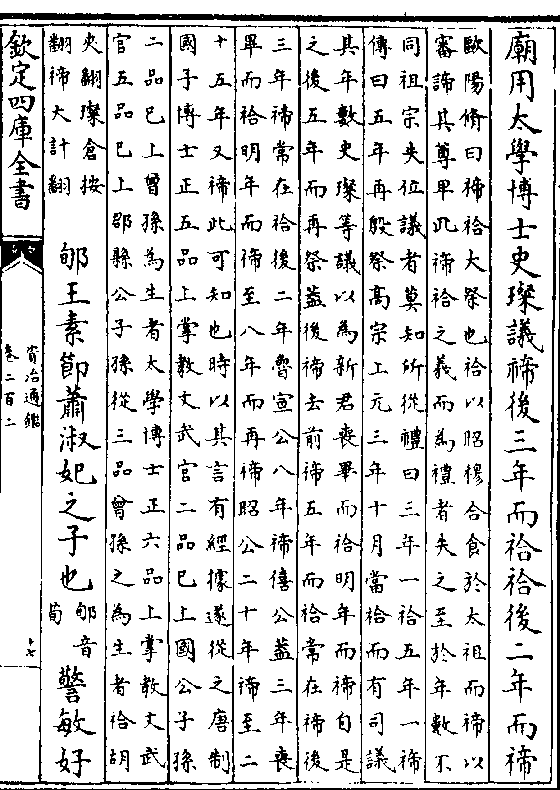 廟用太學博士史璨議禘後三年而祫祫後二年而禘
歐陽脩曰禘祫大祭也祫以昭穆合食於太祖而禘以
審諦其尊卑此禘祫之義而為禮者失之至於年數不
同祖宗失位議者莫知所從禮曰三年一祫五年一禘
傳曰五年再殷祭高宗上元三年十月當祫而有司議
其年數史璨等議以為新君喪畢而祫明年而禘自是
之後五年而再祭蓋後禘去前禘五年而祫常在禘後
三年禘常在祫後二年魯宣公八年禘僖公蓋三年喪
畢而祫明年而禘至八年而再禘昭公二十年禘至二
十五年又禘此可知也時以其言有經據遂從之唐制
國子博士正五品上掌教文武官三品已上國公子孫
二品已上曾孫為生者太學博士正六品上掌教文武
官五品已上郡縣公子孫從三品曾孫之為生者祫胡
夾翻璨倉按
翻禘大計翻
郇王素節蕭淑妃之子也
郇音
荀
警敏好
欽定四庫全書
資治通鑑
卷二百二
十七